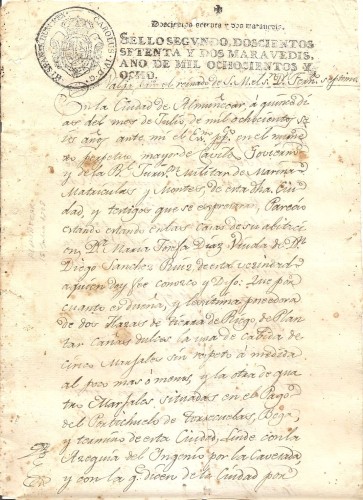 Doscientos setenta y dos maravedis.
SELLO SEGVNDO, DOSCIENTOS
SETENTA Y DOS MARAVEDIS,
AÑO DE MIL OCHOCIENTOS Y
OCHO.
el reinado de S. M. el S. D. Fern. septimo
En la Ciudad de Almuñecar, a quince di
as del mes de Julio, de mil ochocientos
años ante mi el en el
perpetuo mayor de Cavildo, Govierno
y de la Rl. Militar de Marina
Matriculas y Montes, de esta dha. Ciu
dad, y testigos que se expresaran, Parecio
estando en las casas de su abitaci
on, Da. Maria Teresa Diaz Viuda de Dn.
Diego Sanchez Ruiz, de esta vecindad
a quien doy fee conozco y Dijo: Que por
cuanto es dueña, y lexitima poseedora
de dos Hazas de tierra de Riego de Plan
tar cañas dulces la una de cabida de
cinco Marjales sin respeto a medida
al poco mas o menos, y la otra de qua
tro Marjales situadas en el Pago
del Portichuelo de
y termino de esta Ciudad, linde con la
Azequia del Ingenio por la Cavezada,
y con la q. dicen de la Ciudad por